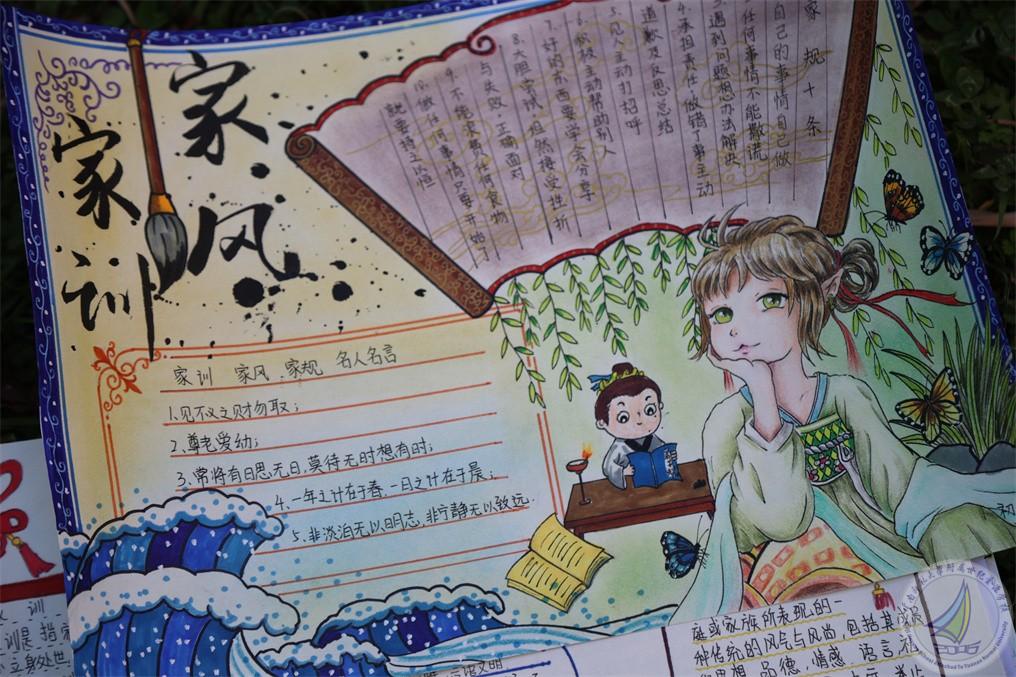 家风
家训
家规十条
自己的事情自己做
任何事情不能撒谎
遇到问题想办法解决
4.承担责任,做错了事主动
道歉及反思总结
5.见人主动打招呼
6.积极主动帮助别人
7.好的东西要学会分享
8.大胆尝试,坦然接受挫折
与失败,正确面对
9.不能浪费任何食物
10.做任何事情只要开始了
就要持之以恒
家训 家风 家规 名人名言
1.见不义之财勿取;
2.尊老爱幼;
3.常将有日思无日,莫待无时想有时;
4.一年之计在于春,一日之计在于晨;
5.非淡泊无以明志,非宁静无以致远.
庭或家族所表现的一
种传统的风气与风尚,包括其成员
思想,品德,情感,语言,
训是指
立身处世
初